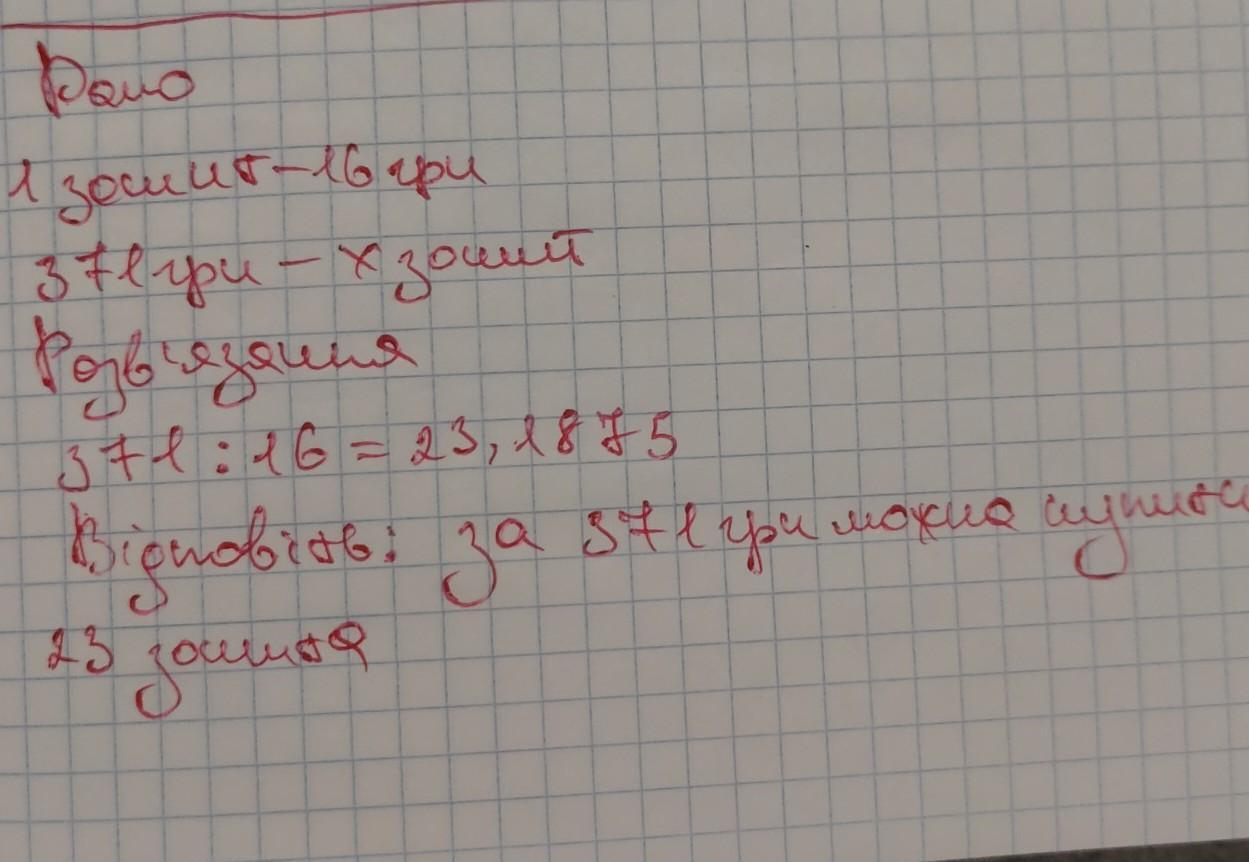 Дано
1 зошит - 16 грн
371 грн - х зошит
Розв'язання
371 : 16 = 23,1875
Відповідь: за 371 грн можна купити
23 зошита